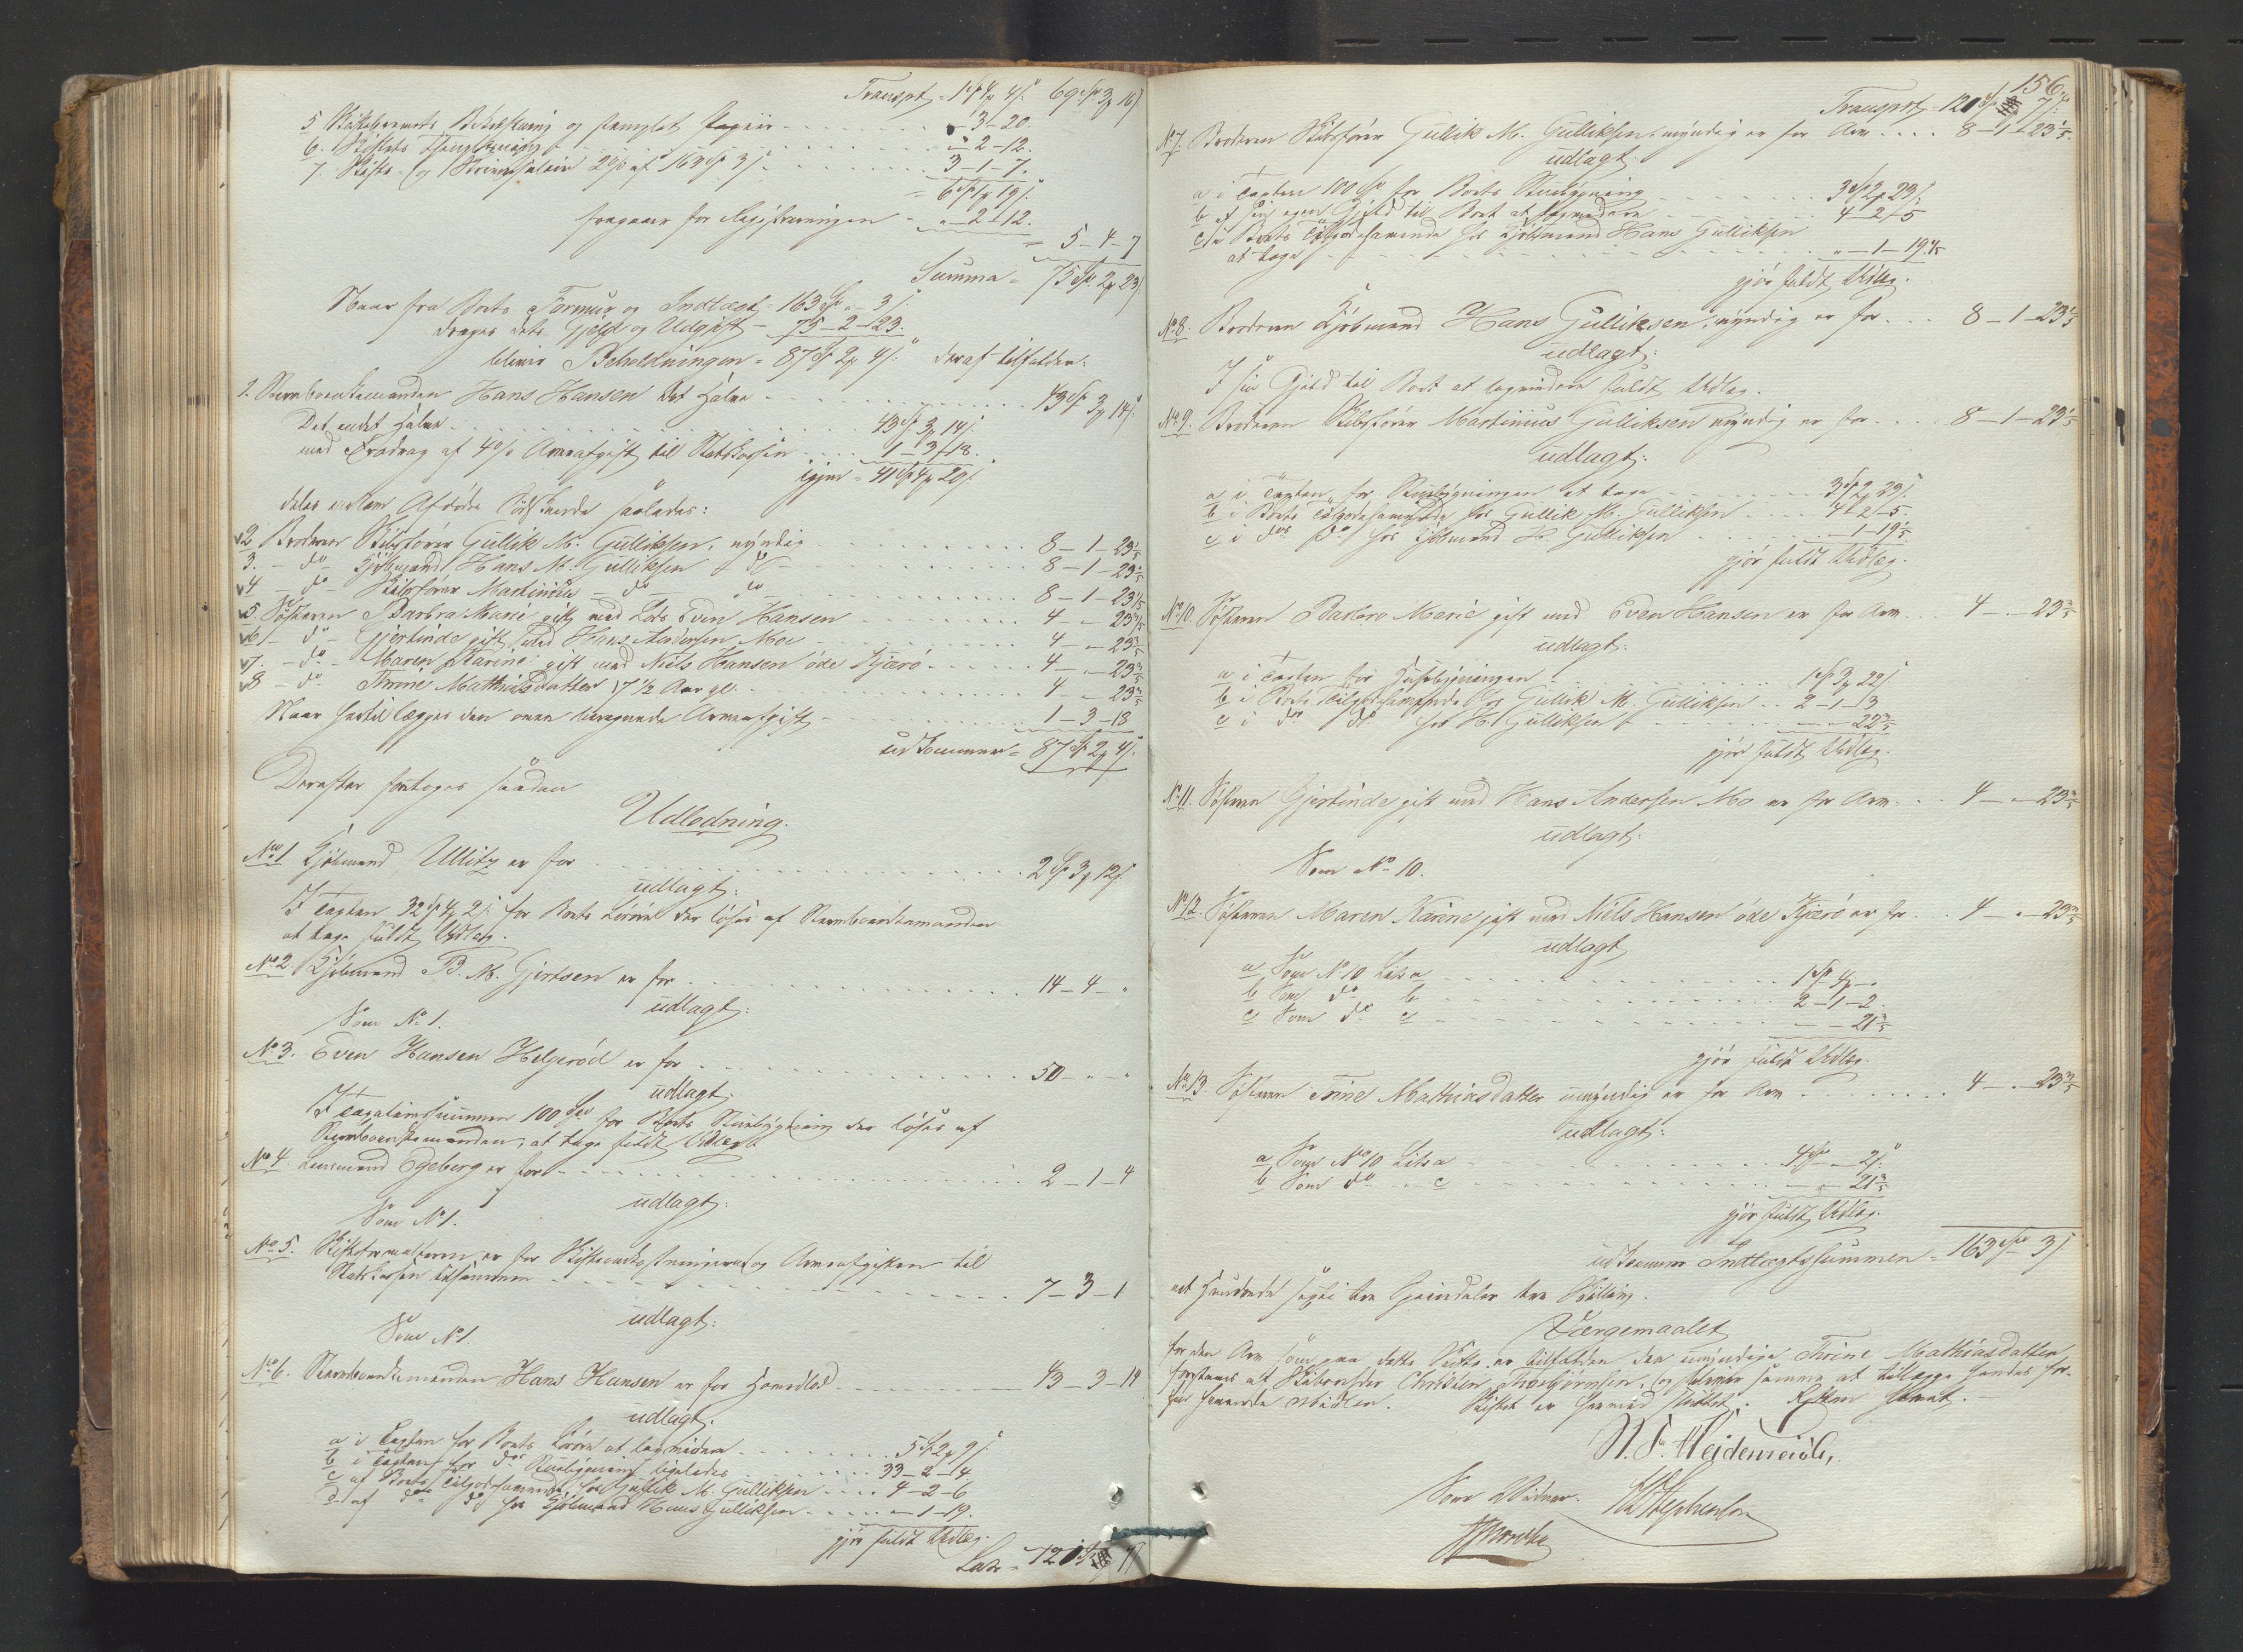 Transpt = 1 Sp 4 ß 69 Sp 3 16 ß.
5 Skiftebrevets Beskrivning og stemplet Papiir - 3 - 20.
6. Skiftets - 2 - 12.
7. Skifte- og Skriversalair 2 % af 163 Sp 3 ß 3 - 1 - 7.
= 6 Sp 1 19 ß.
fragaaer for Registreringen - " - 2 - 12.
= 5 - 4 - 7
Summa = 75 Sp 2 23 ß.
Naar fra Boets Formue og Indtægt = 163 Sp " 3 ß.
drages dets Gjeld og Udgift - 75 - 2 - 23.
bliver Beholdningen = 87 Sp 2 4 ß. deraf tilfalder:
1. Stervboenkemanden Hans Hansen det halve - 43 Sp 3 14 ß.
Det andet halve 43 Sp 3 14 ß.
med Fradrag af 4 % Arveafgift til Statskassen 1 - 3 - 18.
igjen = 41 Sp 4 20 ß.
deles mellem Afdødes Sødskende saaledes:
2 Broderen Skibsfører Gullik M. Gulliksen, myndig 8 - 1 - 23 1/5
3. - do - Kjøbmand Hans M. Gulliksen - do - 8 - 1 - 23 1/5
4 - do - Skibsfører Martinius - do - do 8 - 1 - 23 1/5
5. Søsteren Barbra Marie gift med Lods Even Hansen 4 - " - 23 3/5
6 - do - Gjertinde gift med Hans Andersen Moe 4 - " - 23 3/5
7. - do - Maren Karine gift med Niels Hansen øde Kjærø 4 - " - 23 3/5
8 - do - Thrine Mathiasdatter 17 1/2 Aar gl. 4 - " - 23 3/5
Naar hertil lægges den oven beregnede Arveafgift 1 - 3 - 18
udkommer = 87 Sp 2 4 ß.
Derefter foretoges saadan
Udlodning.
No 1 Kjøbmand Ullitz er for 2 Sp 3 12 ß.
udlagt:
I Taxten 32 Sp 4 2 ß. for Boets Løsøre der løses af Stervboenkemanden
at tage fuldt Udlæg.
No 2. Kjøbmand B. M. Gjertsen er for 14 - 4 - "
udlagt:
Som No 1.
No 3. Even Hansen Helgerød er for 50 - " - "
udlagt:
I Taxationssummen 100 Spd for Boets Huusbygning der løses af
Stervboenkemanden, at tage fuldt Udlæg
No 4. Lensmand Egeberg er for 2 - 1 - 4
udlagt:
Som No 1.
No 5. Skifteforvalteren er for Skifteomkostningerne og Arveafgiften til
Statskassen tilsammen 7 - 3 - 1
udlagt:
Som No 1
No 6. Stervboenkemanden Hans Hansen er for Hovedlod 43 - 3 - 14
udlagt.
a i Taxten for Boets Løsøre at 5 Sp 2 9 ß.
b i Taxten for do Huusbygning ligeledes 33 - 2 - 4
c af Boets Tilgodehavende hos Gullik M. Gulliksen 4 - 2 - 6
d af do do hos Kjøbmand Hans Gulliksen " - 1 - 19.
gjør fuldt Udlæg.
Lat. = 120 Sp 7 ß
156.
Transport = 120 Sp 7 ß.
No 7. Broderen Skibsfører Gullik M. Gulliksen, myndig er for Arv 8 - 1 - 23 1/5.
udlagt.
a i Taxten 100 Spd for Boets Huusbygning 3 Sp 2 23 ß.
b af sin egen Gjeld til Boet at 4 - 2 - 5
c i Boets Tilgodehavende hos Kjøbmand Hans Gulliksen
at tage " - 1 - 19 1/5
gjør fuldt Udlæg.
No 8. Broderen Kjøbmand Hans Gulliksen, myndig er for 8 - 1 - 23 1/5
udlagt:
I sin Gjeld til Boet at fuldt Udlæg.
No 9. Broderen Skibsfører Martinius Gulliksen myndig er for 8 - 1 - 23 1/5
udlagt:
a i Taxten for Huusbygningen at tage 3 Sp 2 23 ß.
b i Boets Tilgodehavende hos Gullik M. Gulliksen 4 - 2 - 5.
c i do do hos Kjøbmand H. Gulliksen - 1 - 19 1/5.
gjør fuldt Udlæg.
No 10. Søsteren Barbro Marie gift med Even Hansen er for Arv 4 - " - 23 3/5
udlagt:
a i Taxten for Huusbygningen 1 Sp 3 22 ß
b i Boets Tilgodehavende hos Gullik M. Gulliksen 2 - 1 - 3
c i do do hos H. Gulliksen - " - 22 3/5
gjør fuldt Udlæg.
No 11. Søsteren Gjertinde gift med Hans Andersen Mo er for Arv 4 - " - 23 3/5
udlagt:
Som No 10.
No 12. Søsteren Maren Karine gift med Niels Hansen øde Kjærø er for 4 - " - 23 3/5
udlagt
a Som No 10 Litr a 1 Sp 4 - "
b Som do b 2 - 1 - 2.
c Som do c - " - 21 3/5
gjør fuldt Udlæg.
No 13. Søsteren Trine Mathiasdatter umyndig er for Arv 4 - " - 23 3/5
udlagt:
a Som No 10 Litr a 4 Sp " 2 ß.
b Som do - c - " - 21 3/5
gjør fuldt Udlæg.
udkommer Indtægtssummen = 163 Spd 3 ß
et Hundrede sexti tre Speciedaler tre Skilling.
Værgemaalet
for den Arv som paa dette Skifte er tilfalden den umyndige Thrine Mathiasdatter,
forestaaes af Christen Thorbjørnsen, og bliver samme at tillægge hendes for-
hen havende Midler. Skiftet er hermed sluttet. Retten hævet.
N. S. Heidenreich,
Som Vidner. Stephensen